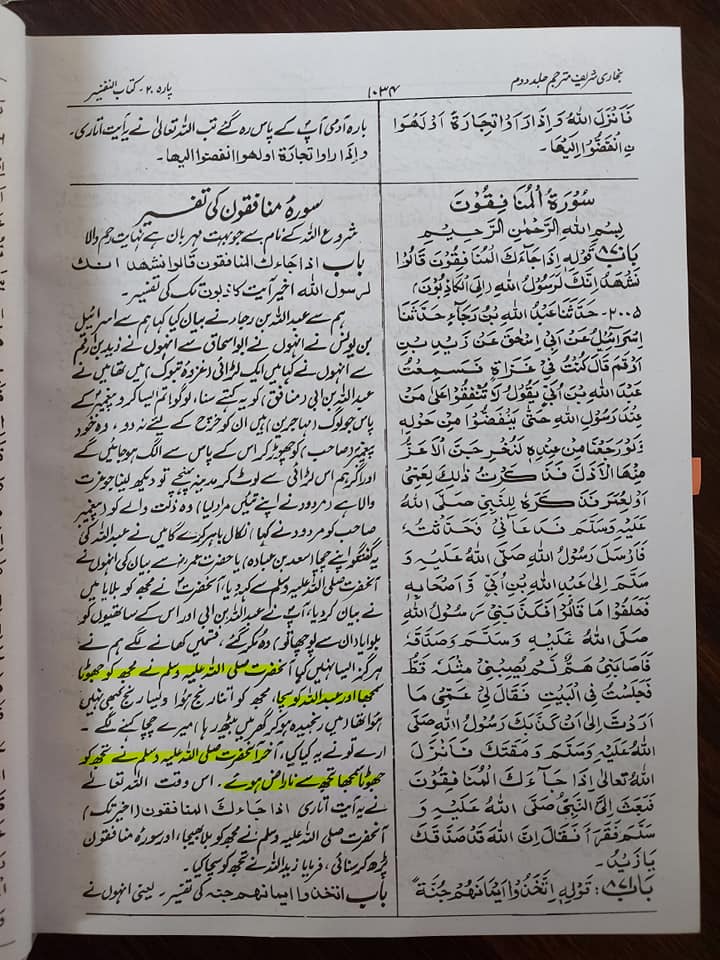 بخاری شریف مترجم جلد دوم
۱۰۳۴
پارہ ۲۰ - کتاب التفسیر
فَاَنْزَلَ اللهُ وَاِذَا رَاَوْا تِجَارَةً اَوْ لَهْوَا
نِ انْفَضُّوْا اِلَيْهَا۔
سُوْرَةُ الْمُنَافِقُوْنَ
بِسْمِ اللهِ الرَّحْمٰنِ الرَّحِيْمِ
بَابُ قَوْلِهٖ اِذَا جَاءَكَ الْمُنَافِقُوْنَ قَالُوْا
نَشْهَدُ اِنَّكَ لَرَسُوْلُ اللهِ (اِلَى الْكَاذِبُوْنَ)
۲۰۰۵- حَدَّثَنَا عَبْدُ اللهِ بْنُ رَجَاءٍ حَدَّثَنَا
اِسْرَائِيْلُ عَنْ اَبِيْ اِسْحٰقَ عَنْ زَيْدِ بْنِ
اَرْقَمَ قَالَ كُنْتُ فِيْ غَزَاةٍ فَسَمِعْتُ
عَبْدَ اللهِ بْنَ اُبَيٍّ يَقُوْلُ لَا تُنْفِقُوْا عَلٰى مَنْ
عِنْدَ رَسُوْلِ اللهِ حَتّٰى يَنْفَضُّوْا مِنْ حَوْلِهٖ
وَلَوْ رَجَعْنَا مِنْ عِنْدِهٖ لَيُخْرِجَنَّ الْاَعَزُّ
مِنْهَا الْاَذَلَّ فَذَكَرْتُ ذٰلِكَ لِعَمِّيْ
اَوْ لِعُمَرَ فَذَكَرَهٗ لِلنَّبِيِّ صَلَّى اللهُ
عَلَيْهِ وَسَلَّمَ فَدَعَانِيْ فَحَدَّثْتُهٗ
فَاَرْسَلَ رَسُوْلُ اللهِ صَلَّى اللهُ عَلَيْهِ وَ
سَلَّمَ اِلٰى عَبْدِ اللهِ بْنِ اُبَيٍّ وَّاَصْحَابِهٖ
فَحَلَفُوْا مَا قَالُوْا فَكَذَّبَنِيْ رَسُوْلُ اللهِ
صَلَّى اللهُ عَلَيْهِ وَسَلَّمَ وَصَدَّقَهٗ
فَاَصَابَنِيْ هَمٌّ لَّمْ يُصِبْنِيْ مِثْلُهٗ قَطُّ
فَجَلَسْتُ فِي الْبَيْتِ فَقَالَ لِيْ عَمِّيْ مَا
اَرَدْتَّ اِلٰى اَنْ كَذَّبَكَ رَسُوْلُ اللهِ صَلَّى
اللهُ عَلَيْهِ وَسَلَّمَ وَمَقَتَكَ فَاَنْزَلَ
اللهُ تَعَالٰى اِذَا جَآءَكَ الْمُنَافِقُوْنَ
فَبَعَثَ اِلَيَّ النَّبِيُّ صَلَّى اللهُ عَلَيْهِ وَ
سَلَّمَ فَقَرَاَ فَقَالَ اِنَّ اللهَ قَدْ صَدَّقَكَ
يَا زَيْدُ۔
بَابُ ۸۷۱: قَوْلِهٖ اِتَّخَذُوْا اَيْمَانَهُمْ جُنَّةً
بارہ آدمی آپؐ کے پاس رہ گئے تب اللہ تعالیٰ نے یہ آیت اتاری۔
واِذا راوا تجارة اولهوا انفضوا اليها۔
سورۂ منافقون کی تفسیر
شروع اللہ کے نام سے جو بہت مہربان ہے نہایت رحم والا
باب اذا جاءك المنافقون قالوا نشهد انك
لرسول الله اخیر آیت کاذبون تک کی تفسیر۔
ہم سے عبداللہ بن رجاء نے بیان کیا کہا ہم سے اسرائیل
بن یونس نے انہوں نے ابو اسحاق سے انہوں نے زید بن ارقم
سے انہوں نے کہا میں ایک لڑائی (غزوۂ تبوک) میں تھا میں نے
عبداللہ بن ابی (منافق) کو یہ کہتے سنا، لوگو! تم ایسا کرو پیغمبر کے
پاس جو لوگ (مہاجرین) ہیں ان کو خرچ کے لئے نہ دو، وہ خود
پیغمبر (صاحب) کو چھوڑ کر اس کے پاس سے الگ ہو جائیں گے
اور اگر ہم اس لڑائی سے لوٹ کر مدینہ پہنچے تو دیکھ لینا جو عزت
والا ہے (مردود نے اپنے تئیں مراد لیا) وہ ذلت والے کو (پیغمبر
صاحب کو مردود نے کہا) نکال باہر کرے گا میں نے عبداللہ کی
یہ گفتگو اپنے چچا (سعد بن عبادہ) یا حضرت عمرؓ سے بیان کی انہوں نے
آنحضرت صلی اللہ علیہ وسلم سے کہہ دیا، آنحضرتؐ نے مجھ کو بلایا میں
نے بیان کر دیا، آپؐ نے عبداللہ بن ابی اور اس کے ساتھیوں کو
بلوایا (ان سے پوچھا تو) وہ مکر گئے، قسمیں کھانے لگے ہم نے
ہرگز ایسا نہیں کہا آنحضرت صلی اللہ علیہ وسلم نے مجھ کو جھوٹا
سمجھا اور عبداللہ کو سچا، مجھ کو اتنا رنج ہوا ویسا رنج کبھی نہیں
ہوا تھا، میں رنجیدہ ہو کر گھر میں بیٹھ رہا، میرے چچا کہنے لگے۔
ارے تو نے یہ کیا کیا، آخر آنحضرت صلی اللہ علیہ وسلم نے تجھ کو
جھوٹا سمجھا تجھ سے ناراض ہوئے۔ اس وقت اللہ تعالیٰ
نے یہ آیت اتاری اذا جاءك المنافقون (اخیر تک)
آنحضرت صلی اللہ علیہ وسلم نے مجھ کو بلا بھیجا، اور سورہ منافقون
پڑھ کر سنائی، فرمایا زید اللہ نے تجھ کو سچا کیا۔
باب اتخذوا ايمانهم جنة کی تفسیر۔ یعنی انہوں نے